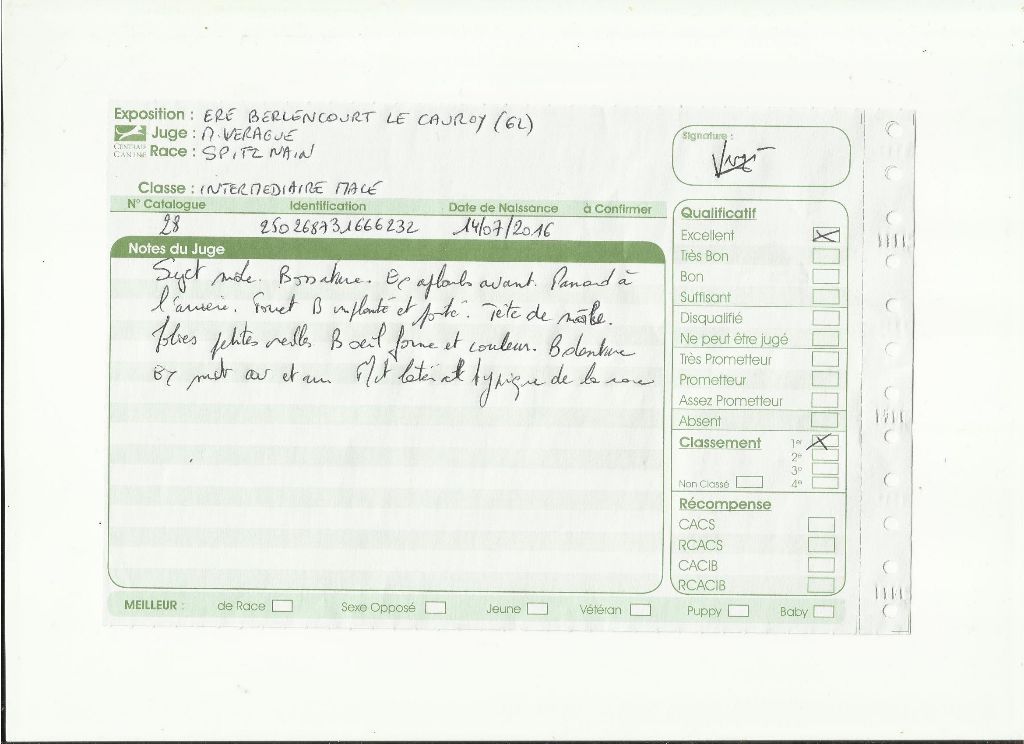 Exposition : ERE BERLENCOURT LE CAUROY (62)
CENTRALE CANINE
Juge : M. VERAGUE
Race : SPITZ NAIN
Signature :
Classe : INTERMEDIAIRE MALE
N° Catalogue Identification Date de Naissance à Confirmer
28 250268731666232 14/07/2016
Notes du Juge
Sujet mâle. B ossature. Ex aplombs avant. Panard à
l'arrière. Fouet B implanté et porté. Tête de mâle.
Jolies petites oreilles B oeil forme et couleur. B denture
Ex mvt av et arr latéral typique de la race
Qualificatif
Excellent X
Très Bon
Bon
Suffisant
Disqualifié
Ne peut être jugé
Très Prometteur
Prometteur
Assez Prometteur
Absent
Classement 1er X
2e
3e
Non Classé 4e
Récompense
CACS
RCACS
CACIB
RCACIB
MEILLEUR : de Race Sexe Opposé Jeune Vétéran Puppy Baby